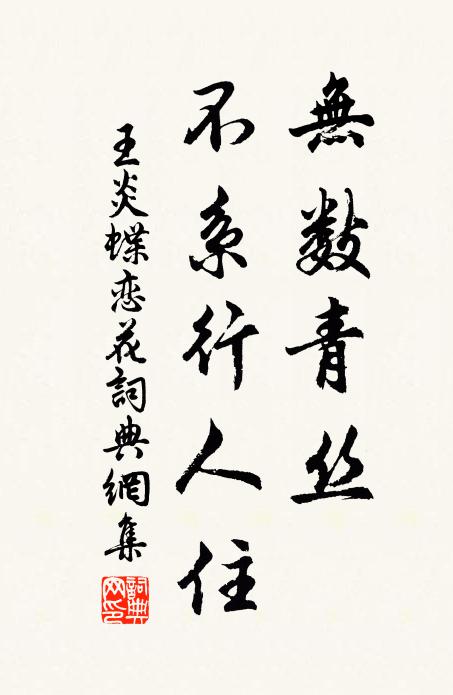 無數青丝
不系行人住
王炎蝶恋花詞典網集
詞典
网印